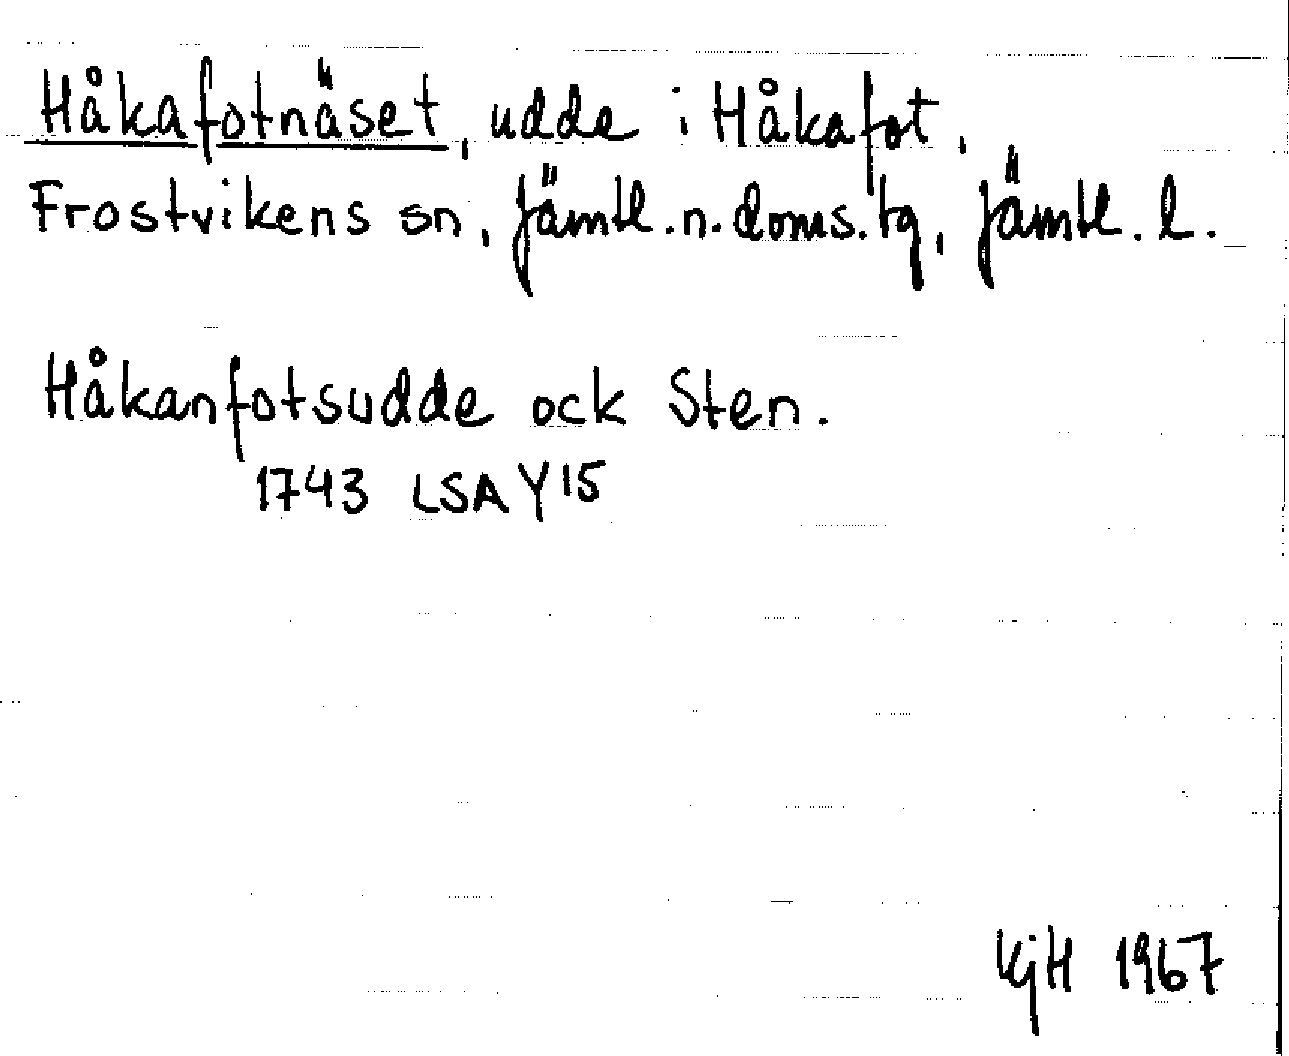 Håkafotnäset, udde i Håkafot,
Frostvikens sn, Jämtl.n.doms.tg, Jämtl. l.
Håkanfotsudde ock Sten.
1743 LSA Y15
KjH 1967